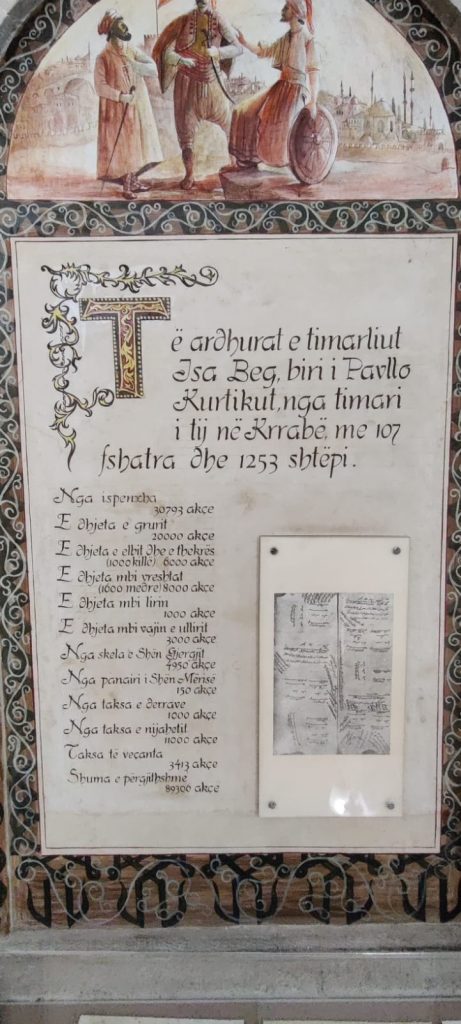 Të ardhurat e timarliut
Isa Beg, biri i Pavllo
Kurtikut, nga timari
i tij në Krrabë, me 107
fshatra dhe 1253 shtëpi.
Nga ispenxha
30793 akçe
E dhjeta e grurit
20000 akçe
E dhjeta e elbit dhe e thekrës
(1000 killë) 6000 akçe
E dhjeta mbi vreshtat
(1600 medre) 8000 akçe
E dhjeta mbi lirin
1000 akçe
E dhjeta mbi vajin e ullirit
3000 akçe
Nga skela e Shën Gjergjit
4950 akçe
Nga panairi i Shën Mërisë
150 akçe
Nga taksa e derrave
1000 akçe
Nga taksa e nijabetit
11000 akçe
Taksa të veçanta
3413 akçe
Shuma e përgjithshme
89306 akçe